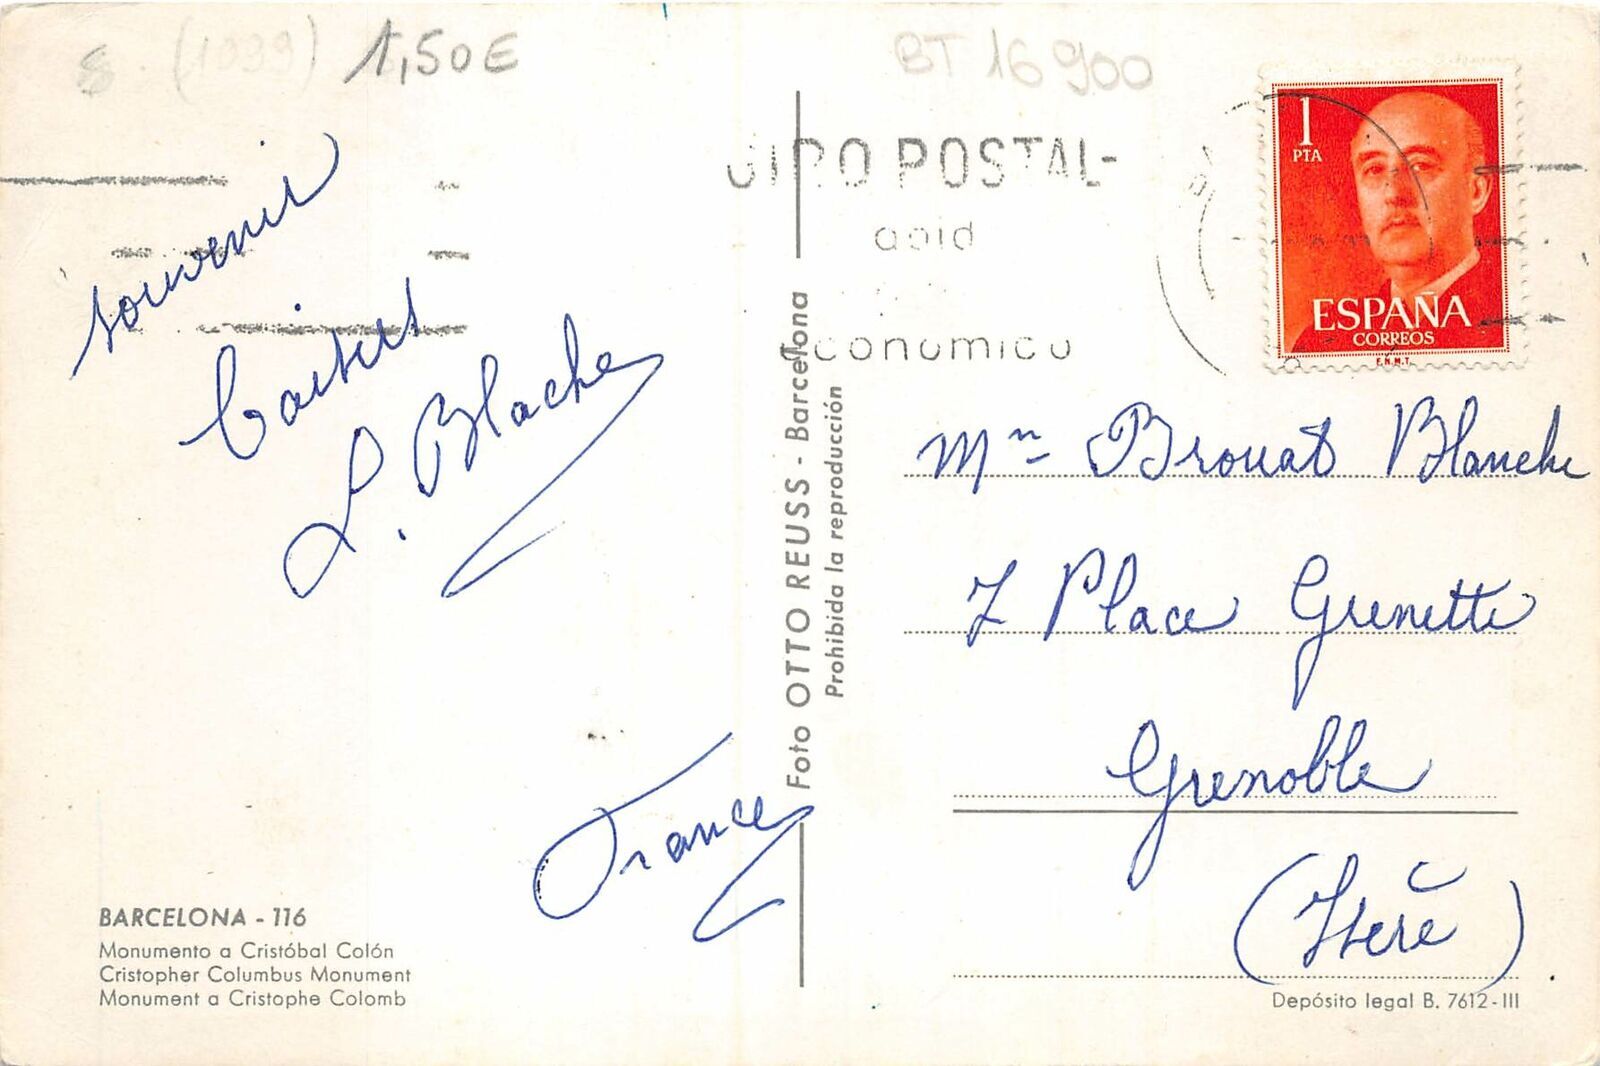 8 (1039) 1,50E
BT 16900
GIRO POSTAL-
económico
1
PTA
ESPAÑA
CORREOS
F.N.M.T.
souvenir
Baisers
L. Blache
France
Foto OTTO REUSS - Barcelona
Prohibida la reproducción
Brouat Blanche
7 Place Grenette
Grenoble
(Isère)
BARCELONA - 116
Monumento a Cristóbal Colón
Cristopher Columbus Monument
Monument a Cristophe Colomb
Depósito legal B. 7612-III